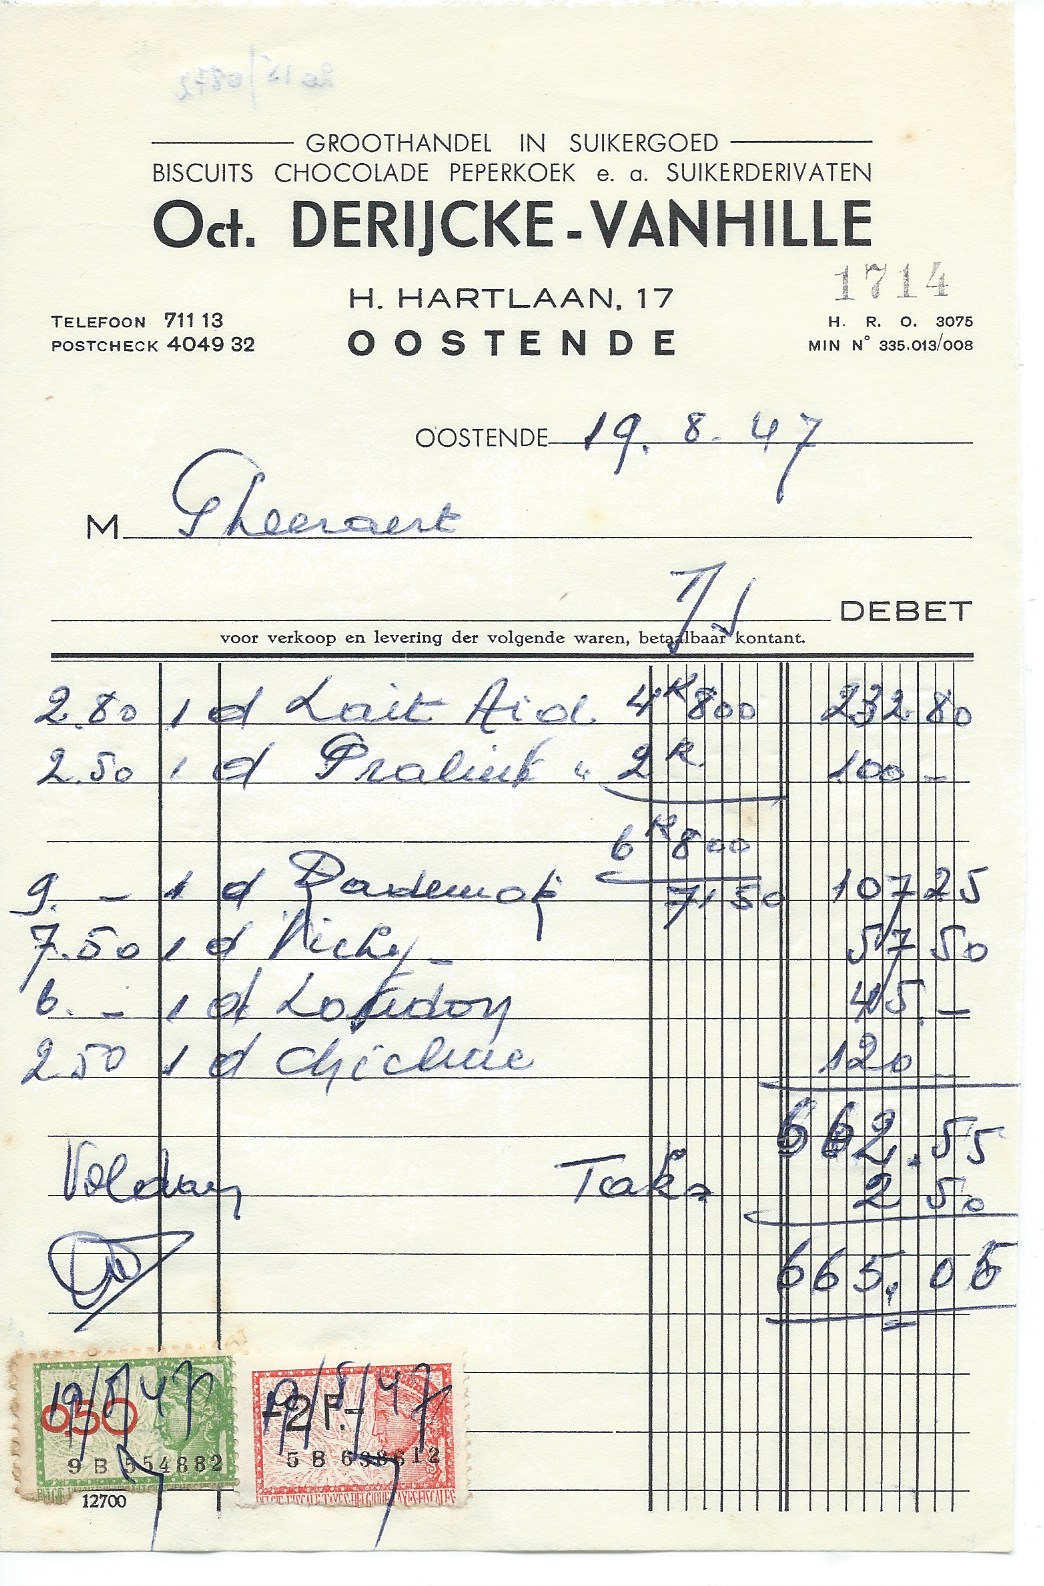 GROOTHANDEL IN SUIKERGOED
BISCUITS CHOCOLADE PEPERKOEK e. a. SUIKERDERIVATEN
Oct. DERIJCKE-VANHILLE
1714
H. HARTLAAN, 17
OOSTENDE
TELEFOON 711 13
POSTCHECK 4049 32
H. R. O. 3075
MIN N° 335.013/008
OOSTENDE 19.8.47
M Pheeraert
DEBET
voor verkoop en levering der volgende waren, betaalbaar kontant.
2.80 1 d Lait Aid 4 K 800 232 80
2.50 1 d Pralink " 2 K. 100 -
6 K 800
9. - 1 d 7150 107 25
7.50 1 d Vichy - 57 50
6. - 1 d London 45. -
2 50 1 d 120 -
662.55
Voldaan Taks 2 50
665.05
19/8/47 19/8/47
050 2 F.-
9 B 554882 5 B 638612
12700